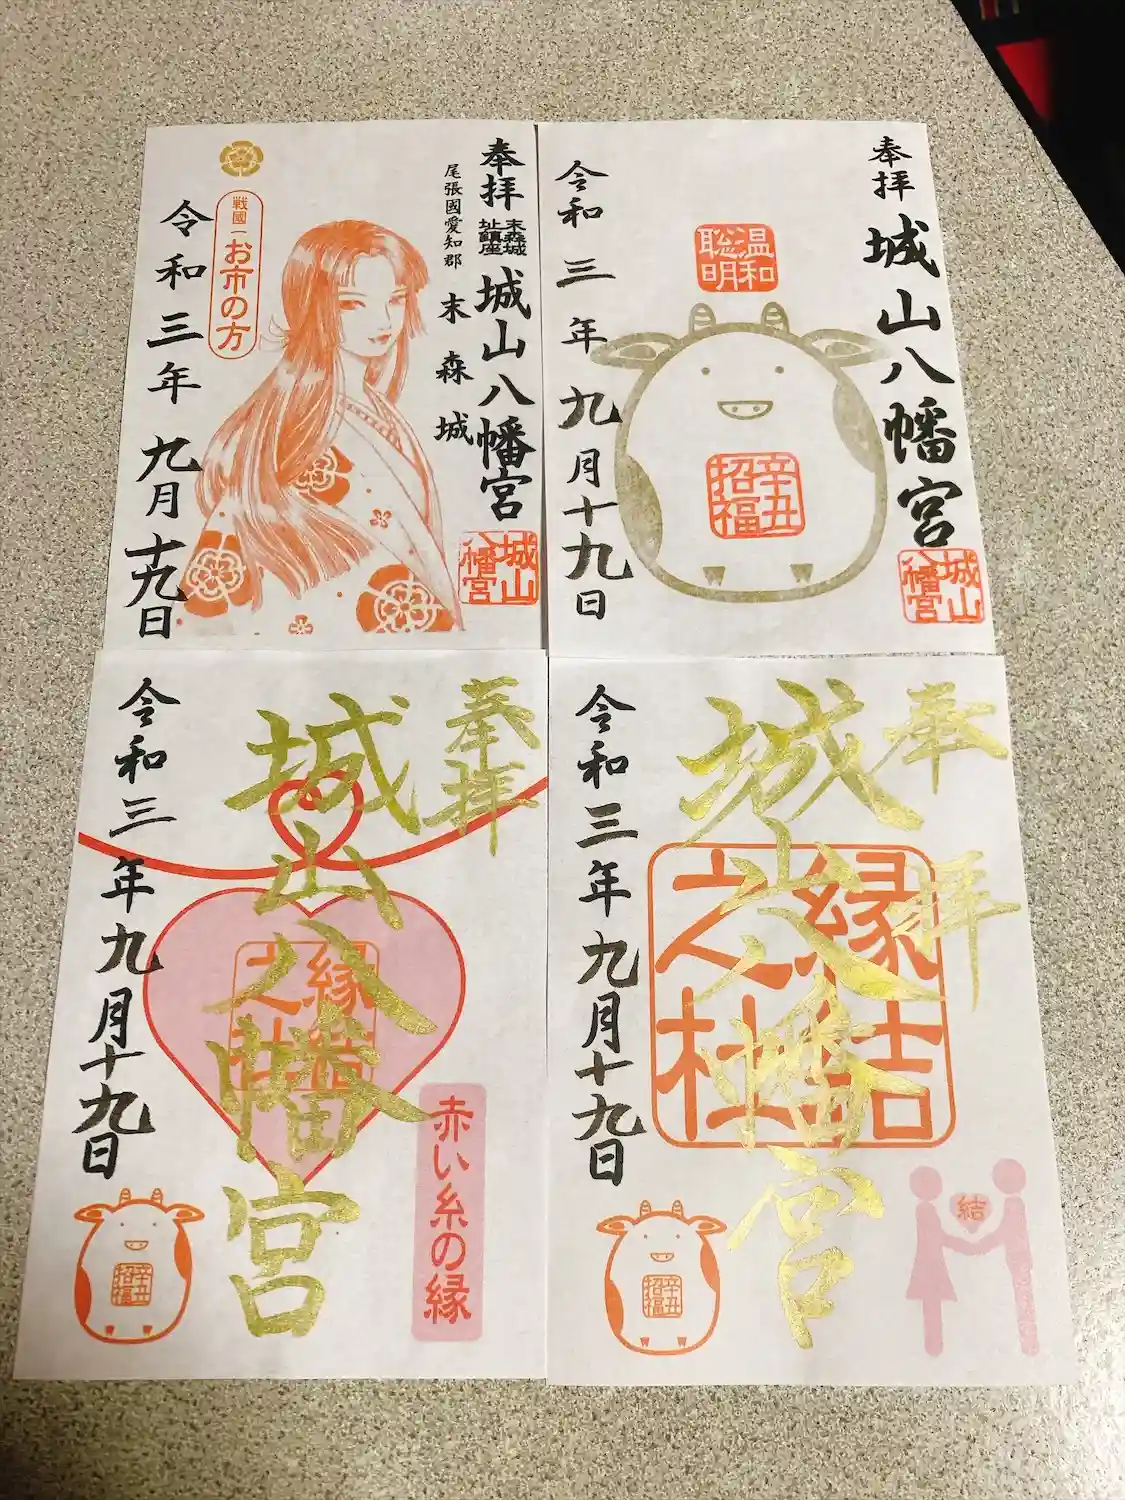 奉拝
末森城
址鎮座
城山八幡宮
尾張國愛知郡
末森城
城山
八幡宮
戦國一
お市の方
令和三年九月十九日
奉拝
城山八幡宮
城山
八幡宮
温和
聡明
辛丑
招福
令和三年九月十九日
奉拝
城山八幡宮
縁結
之社
赤い糸の縁
令和三年九月十九日
辛丑
招福
奉拝
城山八幡宮
縁結
之社
結
令和三年九月十九日
辛丑
招福